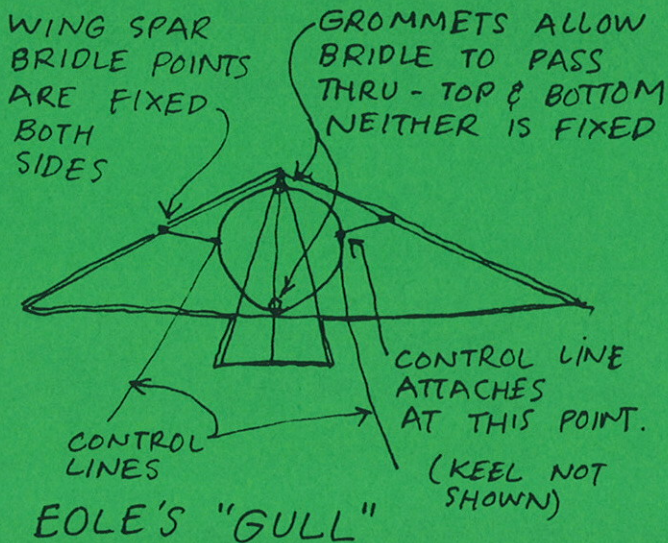 WING SPAR
BRIDLE POINTS
ARE FIXED
BOTH
SIDES
GROMMETS ALLOW
BRIDLE TO PASS
THRU - TOP & BOTTOM
NEITHER IS FIXED
CONTROL LINE
ATTACHES
AT THIS POINT.
(KEEL NOT
SHOWN)
CONTROL
LINES
EOLE'S "GULL"